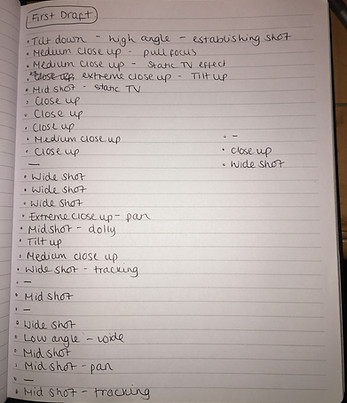 First Draft
• Tilt down - high angle - establishing shot
• Medium close up - pull focus
• Medium close up - static TV effect
• extreme close up - Tilt up
• Mid shot - static TV
• Close up
• Close up
• Close up
• Medium close up
• Close up
—
• Wide shot
• Wide shot
• Wide shot
• Extreme close up - pan
• Mid shot - dolly
• Tilt up
• Medium close up
• Wide shot - tracking
• —
• Mid shot
• —
• Wide shot
• Low angle - wide
• Mid shot
• Mid shot - pan
• —
• Mid shot - tracking
• —
• Close up
• Wide shot